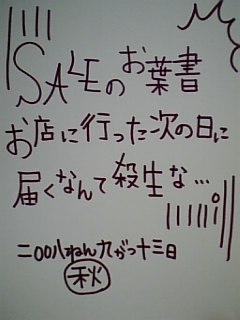 SALEのお葉書
お店に行った次の日に
届くなんて殺生な…
二〇〇八ねん九がつ十三日
秋